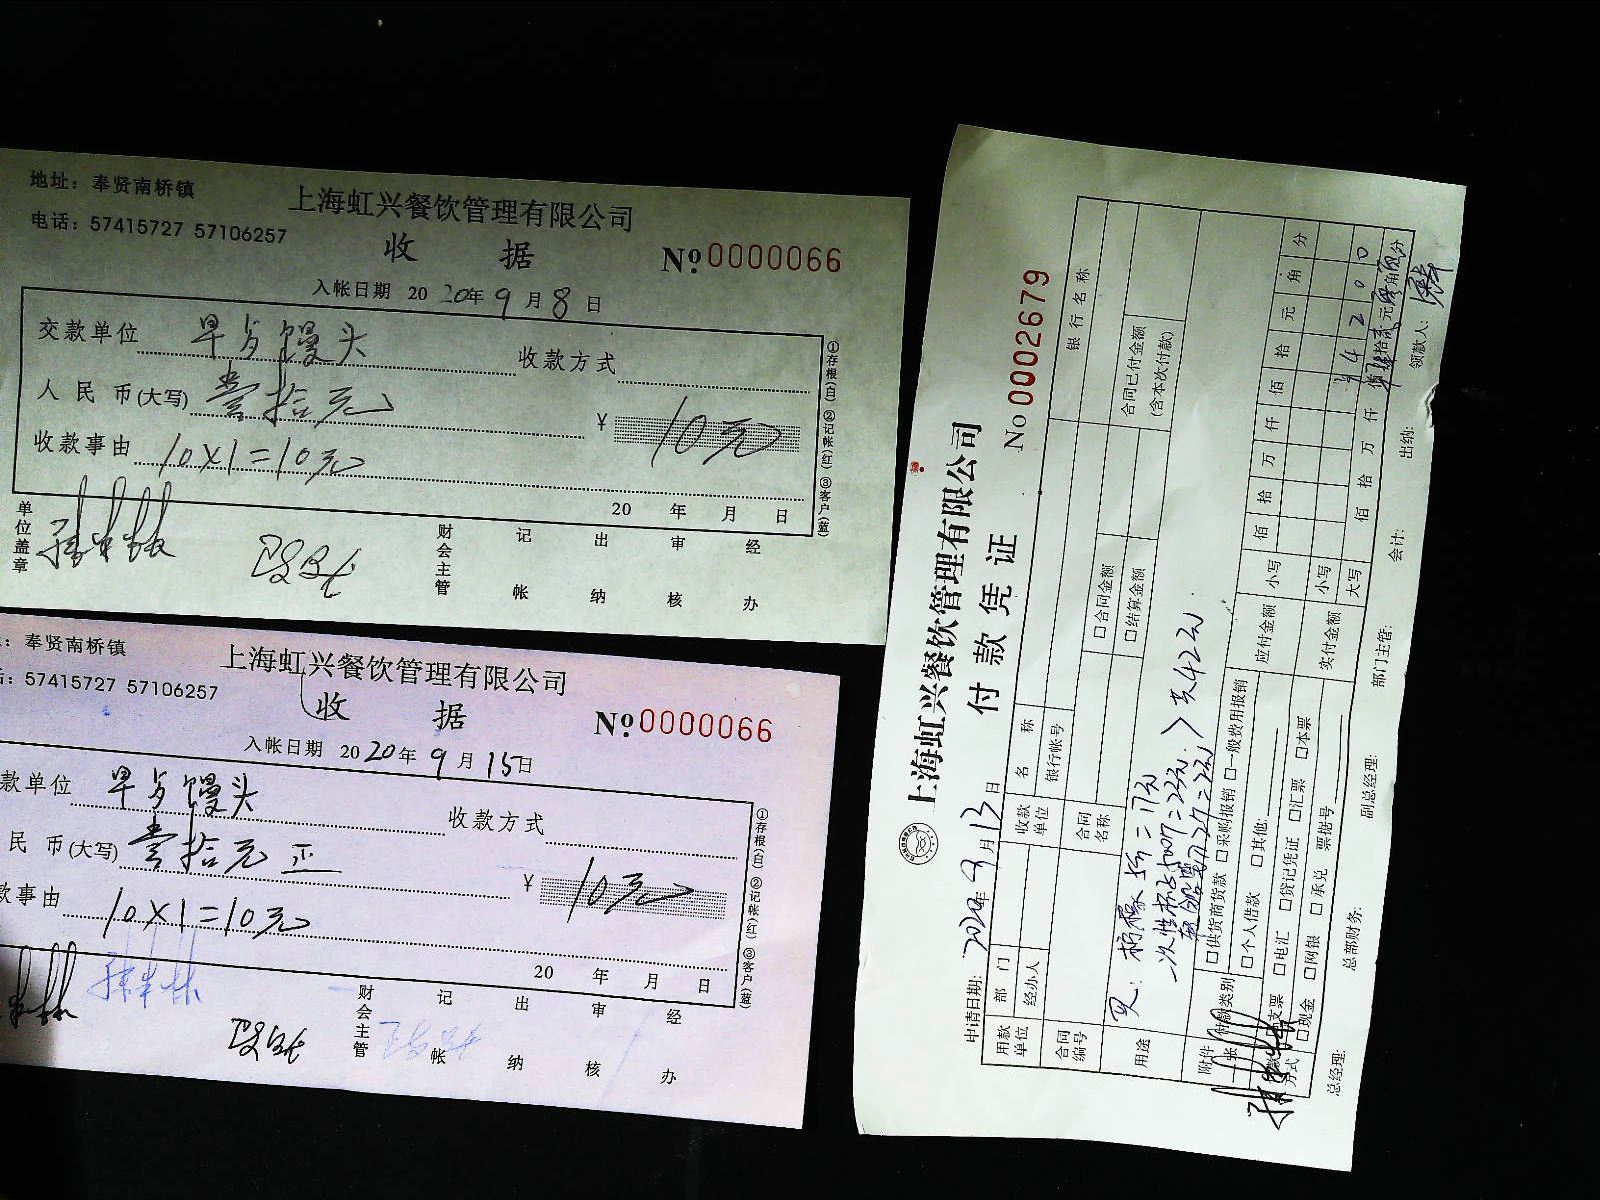 地址：奉贤南桥镇
电话：57415727 57106257
上海虹兴餐饮管理有限公司
收 据
№ 0000066
入帐日期 2020年9月8日
交款单位 早点馒头 收款方式
人民币(大写) 壹拾元 ¥ 10元
收款事由 10×1=10元
20 年 月 日
单位盖章 财会主管 记帐 出纳 审核 经办
①存根(白) ②记帐(红) ③客户(蓝)
：奉贤南桥镇
：57415727 57106257
上海虹兴餐饮管理有限公司
收 据
№ 0000066
入帐日期 2020年9月15日
款单位 早点馒头 收款方式
民币(大写) 壹拾元正 ¥ 10元
款事由 10×1=10元
20 年 月 日
财会主管 记帐 出纳 审核 经办
①存根(白) ②记帐(红) ③客户(蓝)
上海虹兴餐饮管理有限公司
付款凭证
No 0002679
申请日期: 2020年9月13日
用款单位 部门 收款单位 名称 银行名称
经办人 银行帐号
合同编号 合同名称 □合同金额 合同已付金额
□结算金额 (含本次付款)
用途 买:
=17元
一次性杯 =23元 共42元
=2元
附件 张 付款类别 □供货商货款 □采购报销 □一般费用报销 应付金额 小写 佰 拾 万 仟 佰 拾 元 角 分
□个人借款 □其他:
付款方式 □支票 □电汇 □贷记凭证 □汇票 □本票 实付金额 小写 ¥ 4 2 0 0
□现金 □网银 □承兑 票据号 大写 佰 拾 万 仟 佰 肆拾贰元零角零分
总经理: 总部财务: 副总经理: 部门主管: 会计: 出纳: 领款人: